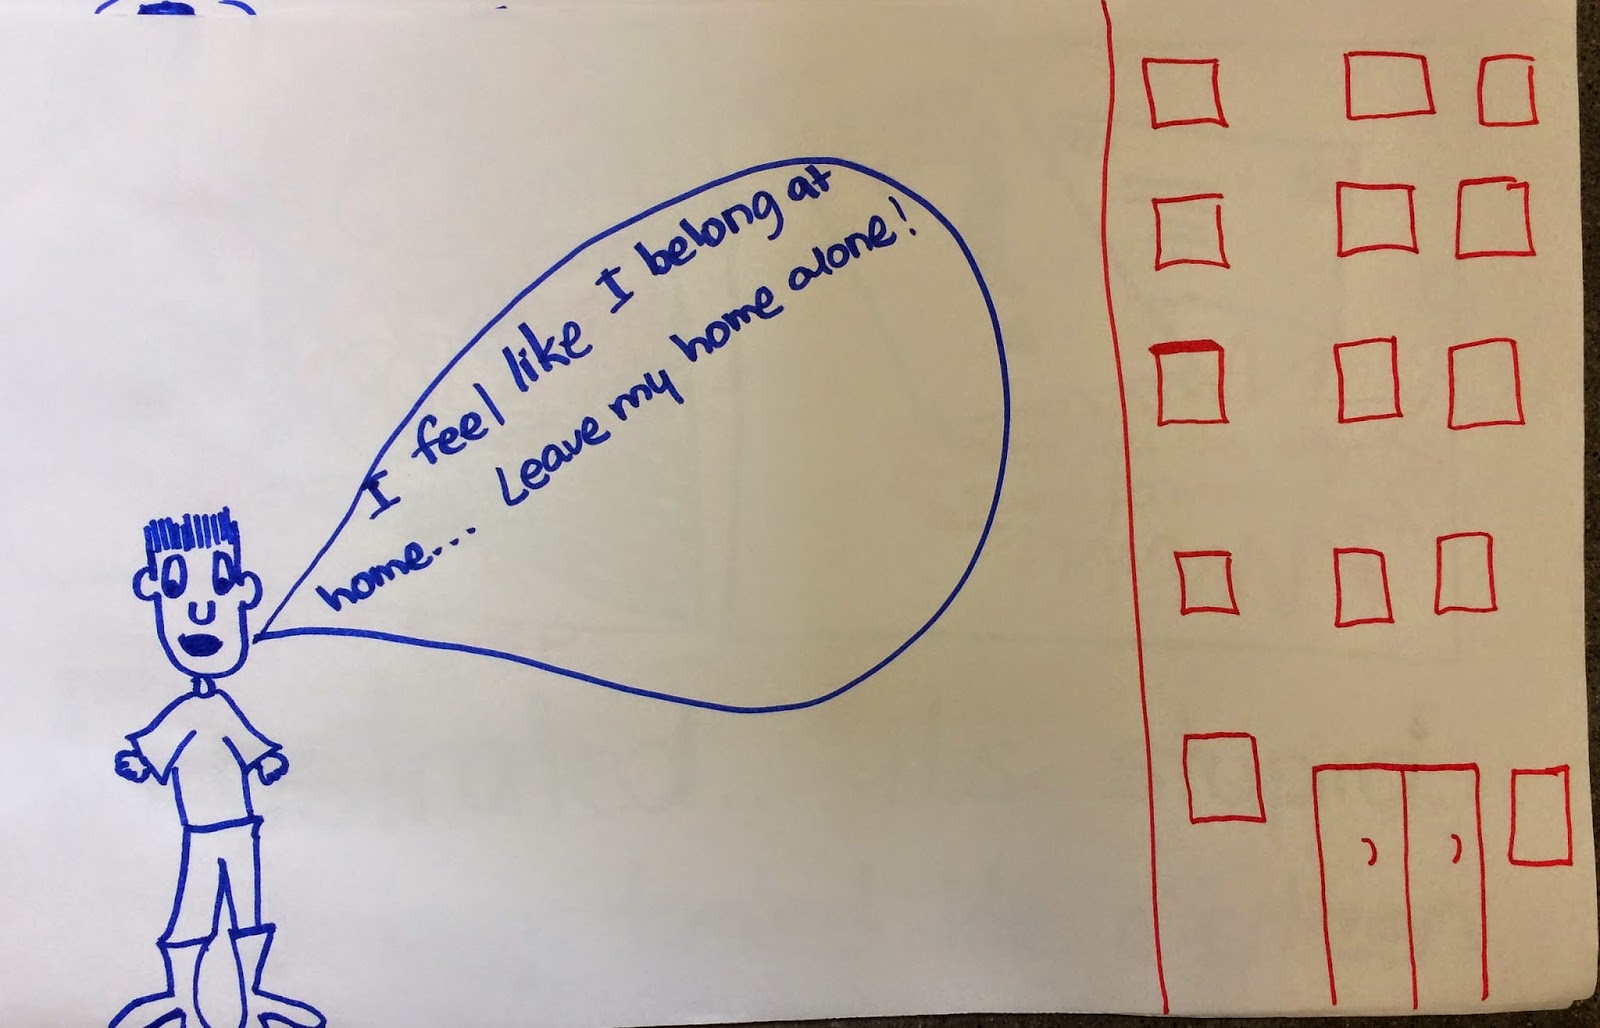 I feel like I belong at
home... Leave my home alone!